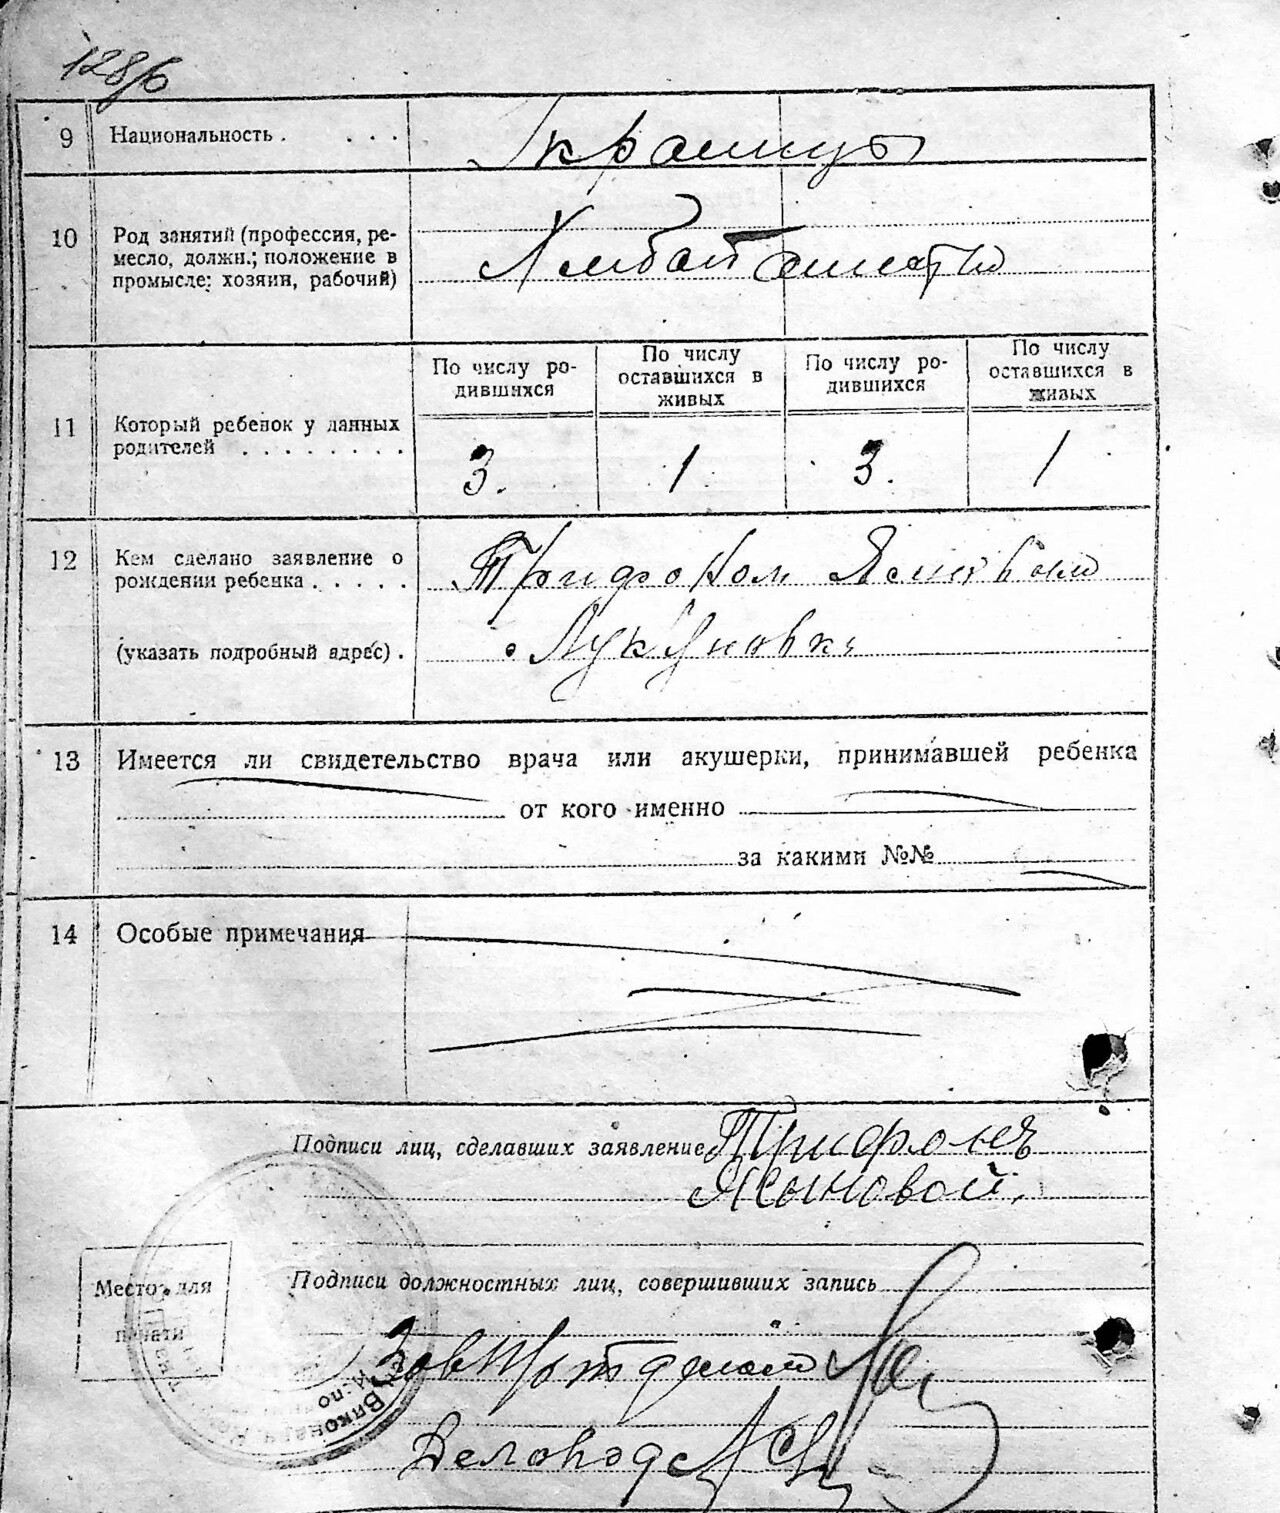 128/6
9 Национальность . . . . Украинцы
10 Род занятий (профессия, ре-
месло, должн.; положение в
промысле: хозяин, рабочий)
11 Который ребенок у данных
родителей . . . . . . . .
По числу ро-
дившихся
По числу
оставшихся в
живых
По числу ро-
дившихся
По числу
оставшихся в
живых
3. 1. 3. 1
12 Кем сделано заявление о
рождении ребенка . . . . . Трифоном
(указать подробный адрес) .
13 Имеется ли свидетельство врача или акушерки, принимавшей ребенка
от кого именно
за какими №№
14 Особые примечания
Подписи лиц, сделавших заявление Трифонъ
Ясыновой.
Подписи должностных лиц, совершивших запись
Место для
печати
Деловод